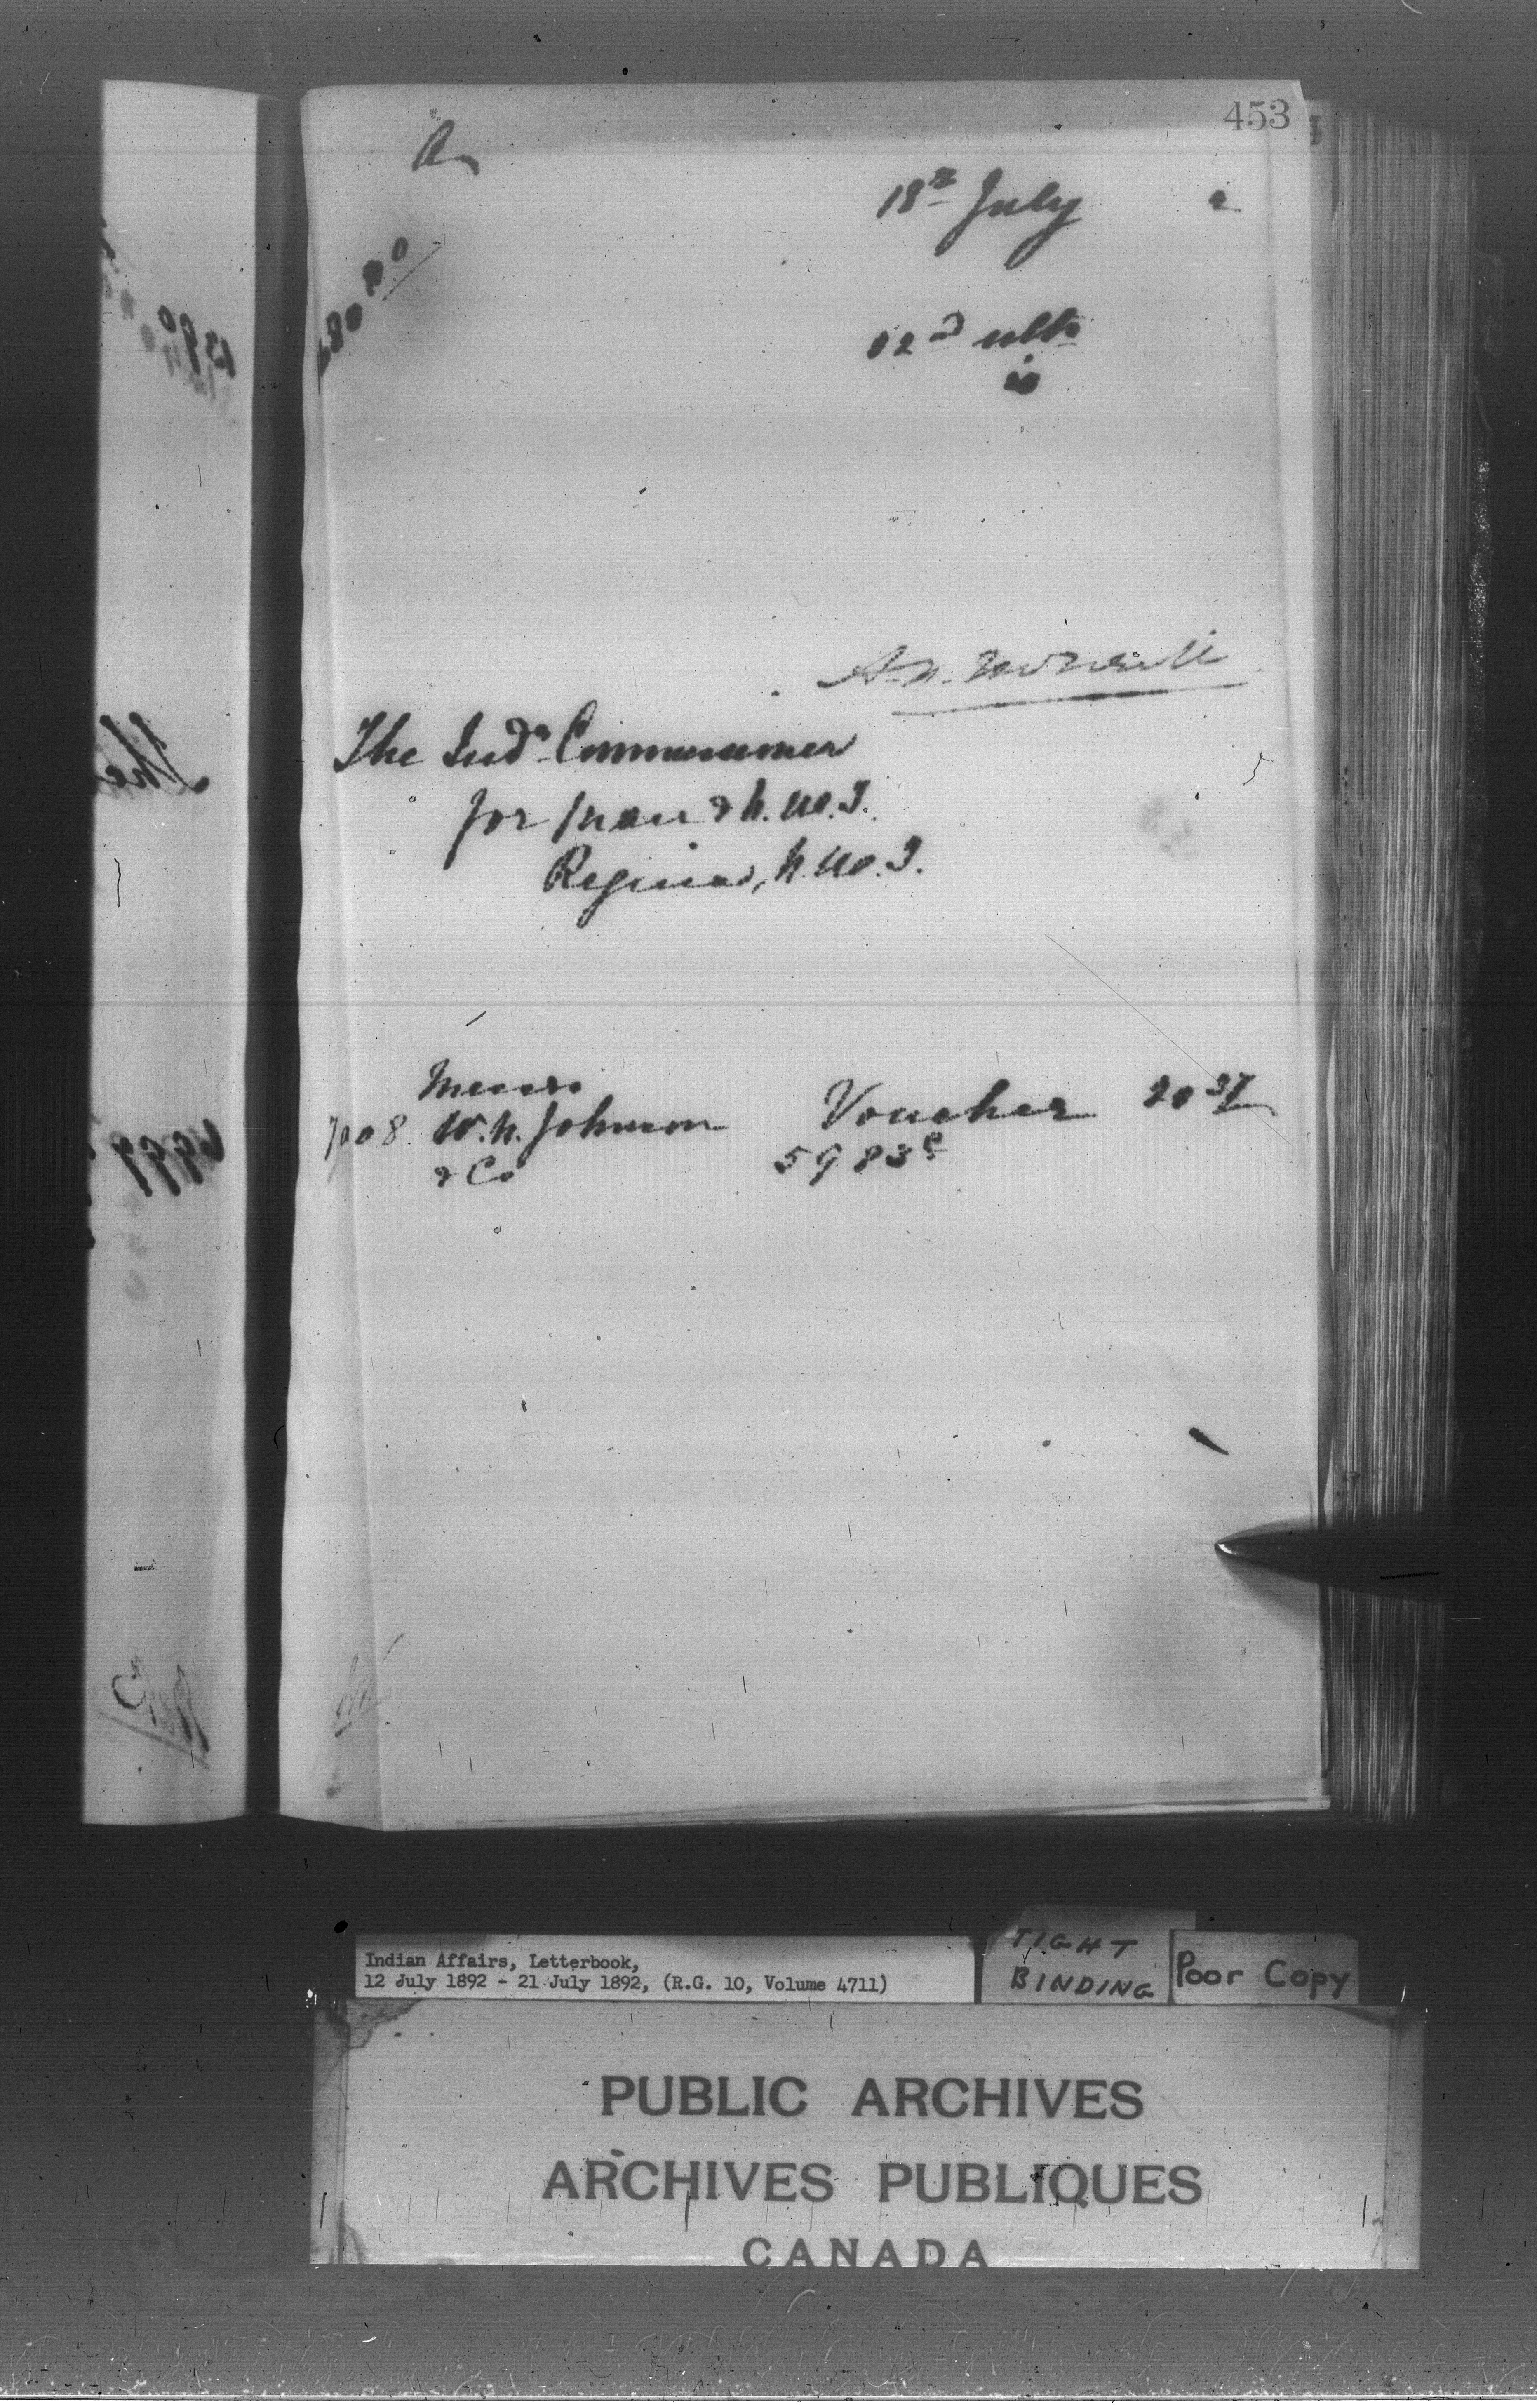 453
18th July 2
22nd ulto
The Indn Commissioner
for Man & N.W.T.
Regina, N.W.T.
Messrs
7008 W.H. Johnson Voucher 20 37
& Co 5983
Indian Affairs, Letterbook,
12 July 1892 - 21 July 1892, (R.G. 10, Volume 4711)
TIGHT
BINDING
Poor Copy
PUBLIC ARCHIVES
ARCHIVES PUBLIQUES
CANADA